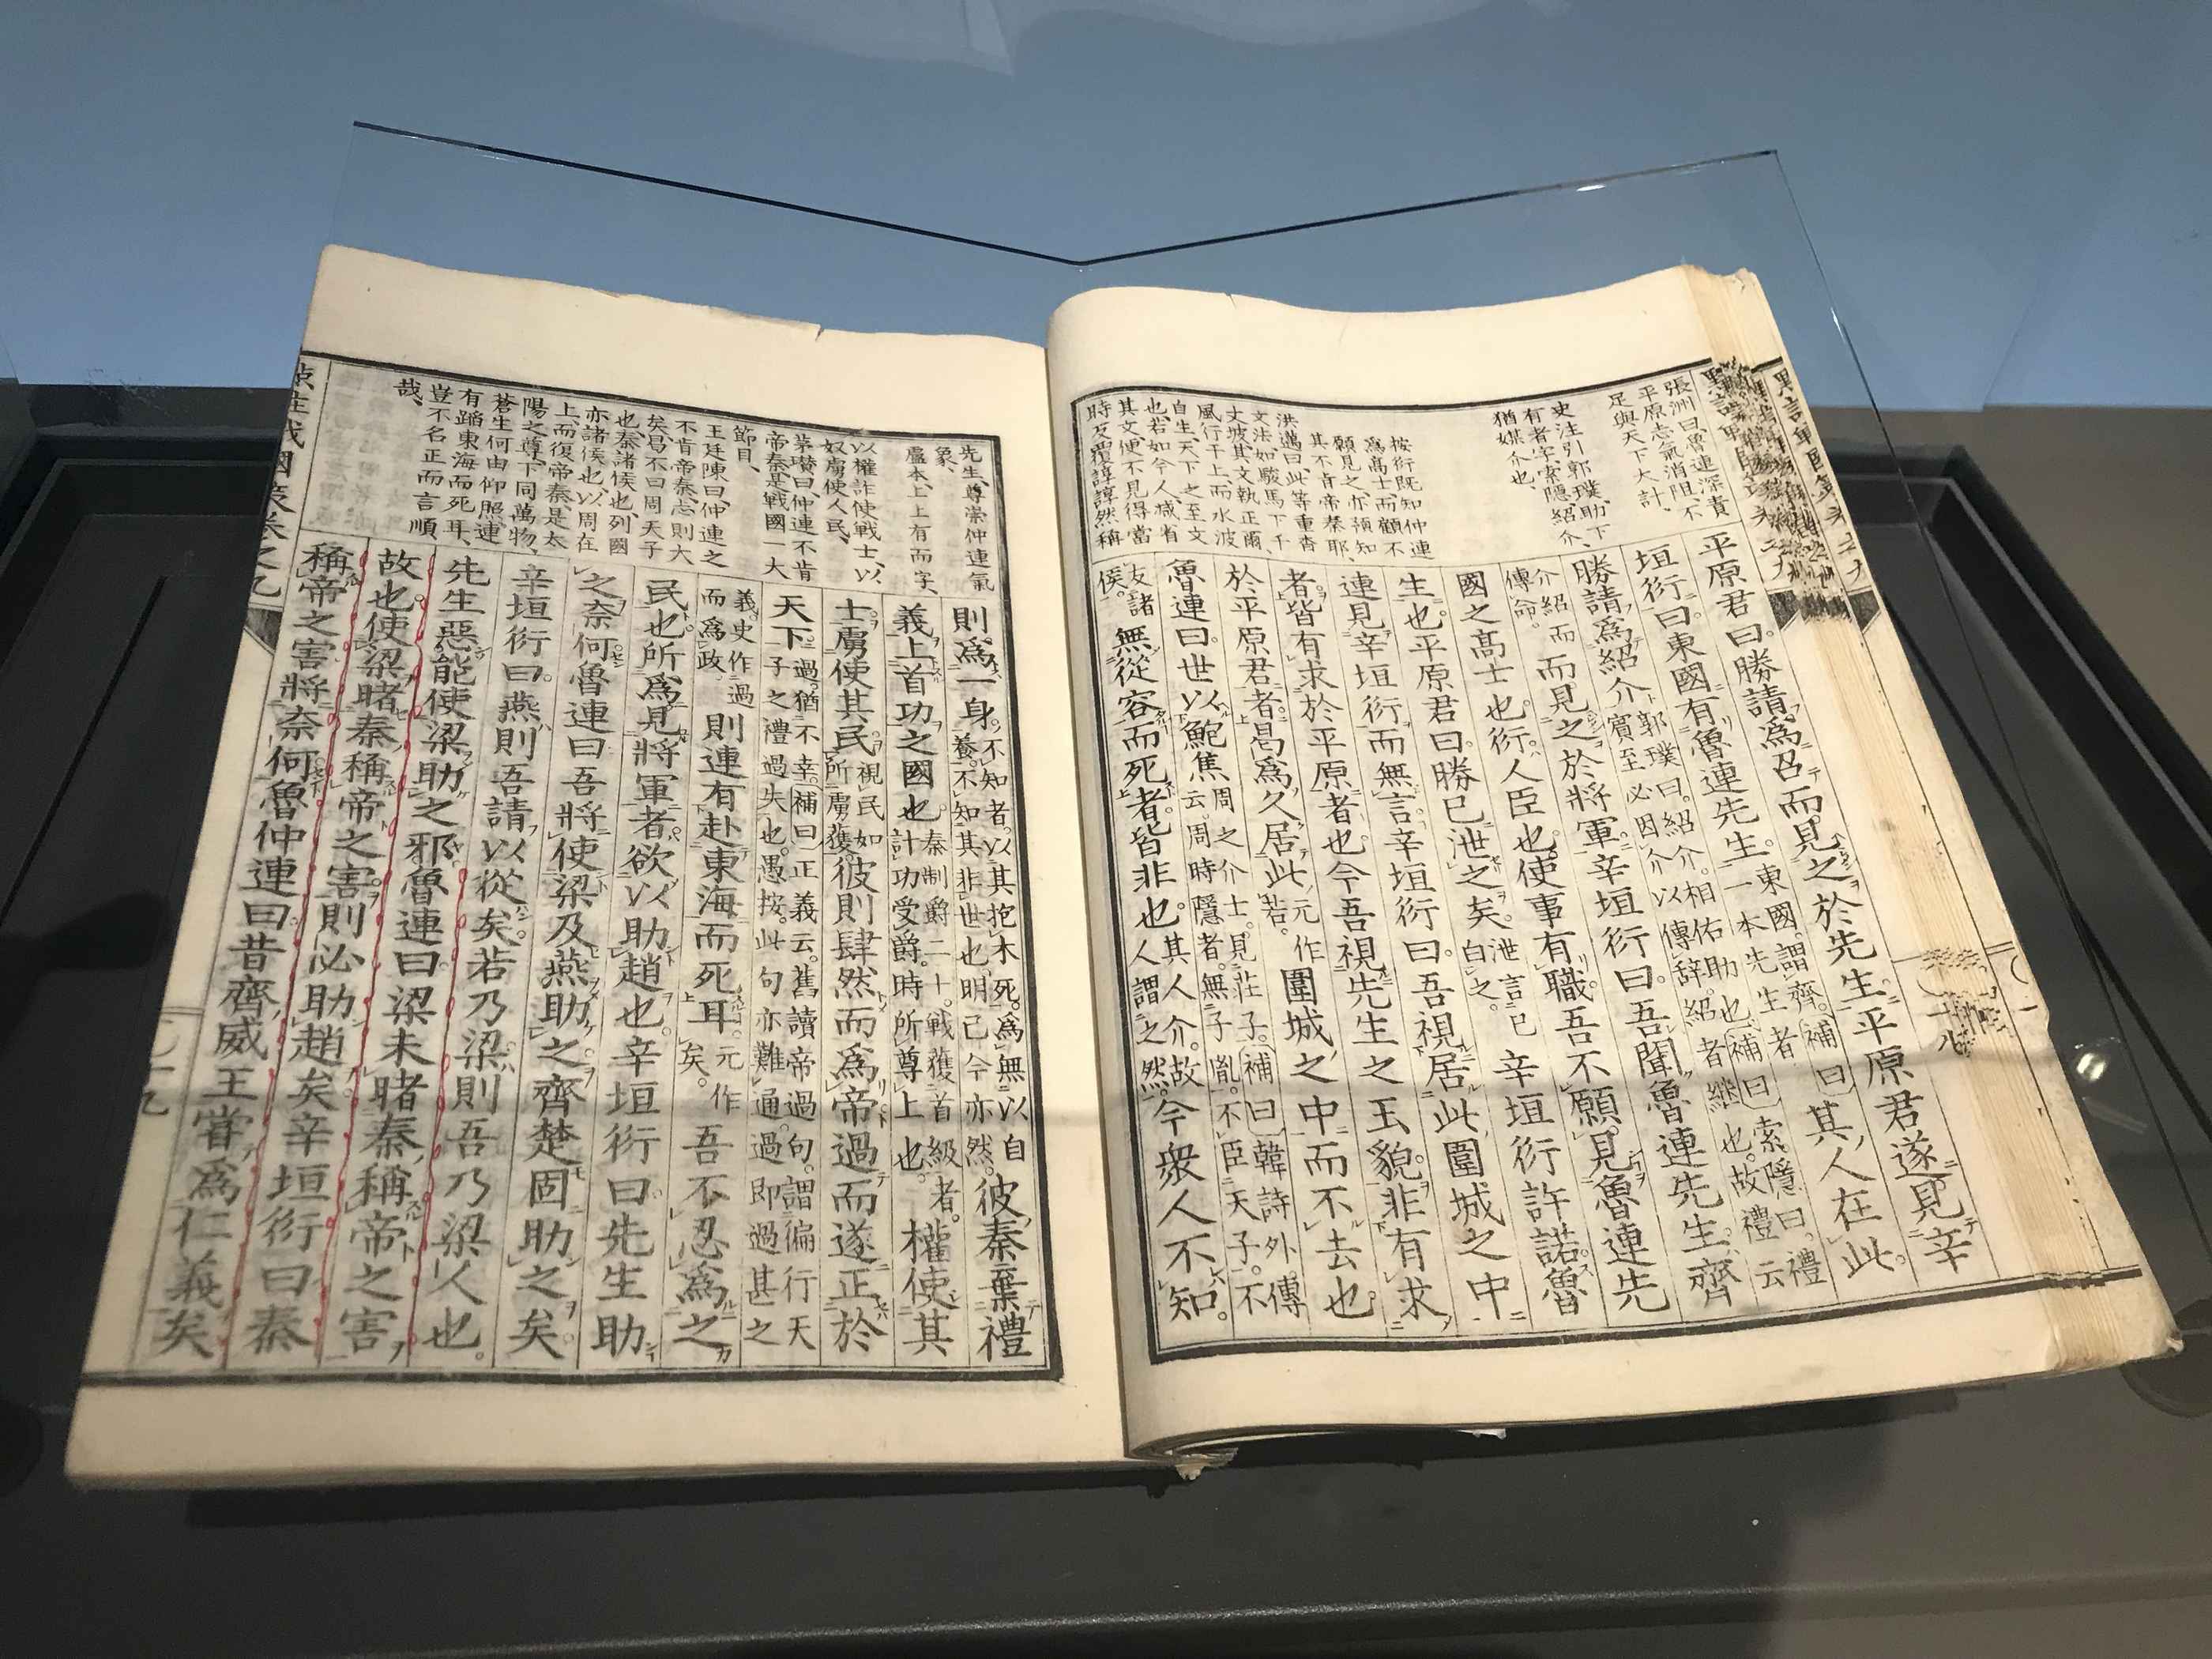 張洲曰魯連深責
平原志氣消阻不
足與天下大計、
史注引郭璞助下
有者字索隱紹介、
猶媒介也、
按衍既知仲連
為髙士而顧不
願見之亦預知
其不肯帝秦耶、
洪邁曰此等重沓
文法如駿馬下千
丈坡其文執正爾、
風行于上而水波
自生天下之至文
也若如今人減省
其文便不見得當
時反覆諄諄然稱
平原君曰。勝請為召而見之於先生。平原君遂見辛
垣衍曰。東國有魯連先生。東國。謂齊。補曰一本先生者其人在此。
勝請為紹介郭璞曰。紹介相佑助也補曰索隱曰。禮賓至必因介以傳辞。紹者継也。故禮云
介紹而傳命。而見之於將軍。辛垣衍曰。吾聞魯連先生。齊
國之髙士也。衍人臣也。使事有職。吾不願見魯連先
生也。平原君曰。勝已泄之矣。泄言已白之。辛垣衍許諾。魯
連見辛垣衍而無言。辛垣衍曰。吾視居此圍城之中
者。皆有求於平原君者也。今吾視先生之玉貌。非有求
於平原君者。曷為久居此若。元作圍城之中而不去也。
魯連曰。世以鮑焦周之介士。見莊子。補曰韓詩外傳云。周時隱者。無子胤。不臣天子。不
友諸侯。無從容而死者。皆非也。其人介。故人謂之然。今衆人不知。
先生、尊崇仲連氣
象、
盧本上上有而字、
以權詐使戰士、以
奴虜使人民、
茅瓚曰仲連不肯
帝秦是戰國一大
節目、
王廷陳曰、仲連之
不肯帝秦、志則大
矣、曷不曰周天子
也秦諸侯也、列國
亦諸侯也、以周在
上、而復帝秦、是太
陽之尊、下同萬物、
蒼生何由仰照、連
有蹈東海而死耳、
豈不名正而言順
哉、
則為一身。不知者。以其抱木死。為無以自養。不知其非世也明已今亦然。彼秦棄禮
義上首功之國也。秦制爵二十。戰獲首級者。計功受爵。時所尊上也。權使其
士。虜使其民。視民如所虜獲。彼則肆然而為帝。過而遂正於
天下。過。猶不幸。補曰正義云。舊讀帝過句。謂偏行天子之禮過失也。愚按。此句亦難通。過即過甚之
義。史作過而為政。則連有赴東海而死耳。元作矣。吾不忍為之
民也。所為見將軍者。欲以助趙也。辛垣衍曰。先生助
之奈何。魯連曰。吾將使梁及燕助之。齊楚固助之矣。
辛垣衍曰。燕則吾請以從矣。若乃梁。則吾乃梁人也。
先生惡能使梁助之邪。魯連曰。梁未睹秦稱帝之害
故也。使梁睹秦稱帝之害。則必助趙矣。辛垣衍曰。秦
稱帝之害將奈何。魯仲連曰。昔齊威王嘗為仁義矣